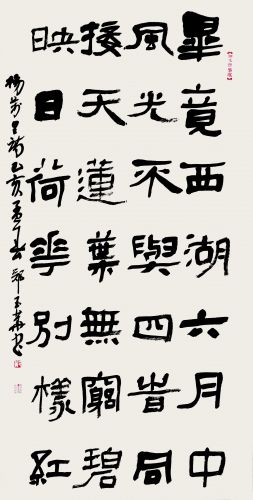 畢竟西湖六月中
風光不與四旹同
接天蓮葉無窮碧
映日荷華別樣紅
楊萬里詩